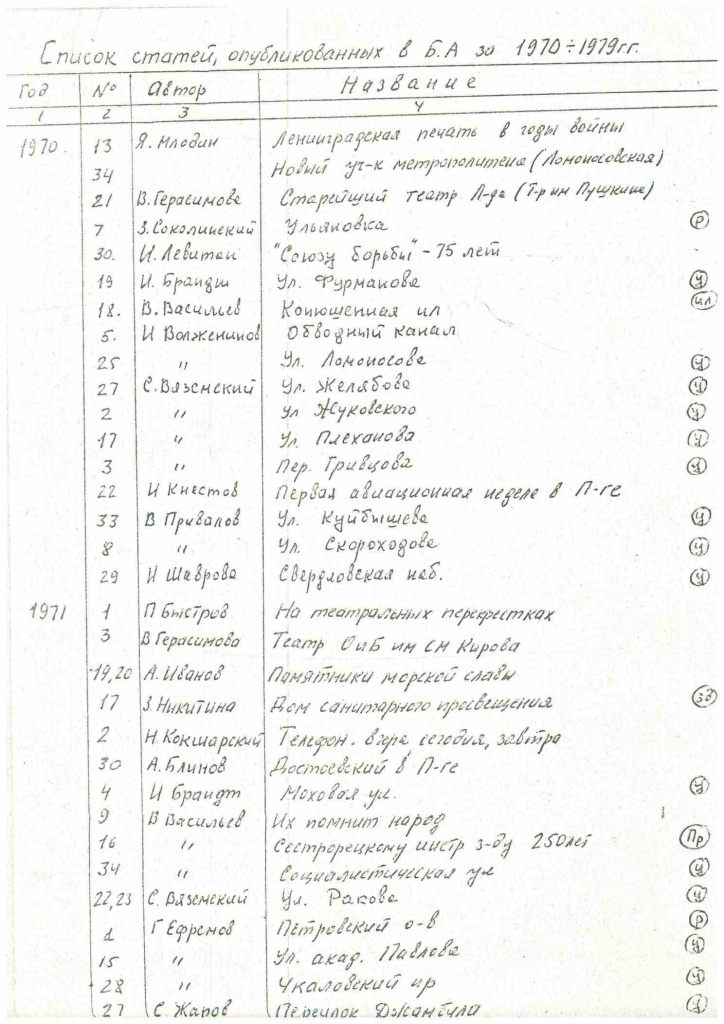 Список статей, опубликованных в Б.А за 1970÷1979гг.
Год № Автор Название
1 2 3 4
1970. 13 Я. Млодин Ленинградская печать в годы войны
34 Новый уч-к метрополитена (Ломоносовская)
21 В. Герасимова Старейший театр Л-да (Т-р им Пушкина)
7 З. Соколинский Ульяновка (р)
30. И. Левитан "Союзу борьбы" - 75 лет
19 И. Брандт Ул. Фурманова (у)
18. В. Васильев Конюшенная пл (пл)
5. И Волженинов Обводный канал
25 " Ул. Ломоносова (у)
27 С. Вяземский Ул. Желябова (у)
2 " Ул Жуковского (у)
17 " Ул. Плеханова (у)
3 " Пер. Гривцова (у)
22 И Кнестов Первая авиационная неделя в П-ге
33 В Привалов Ул. Куйбышева (у)
8 " Ул. Скороходова (у)
29 И Шаврова Свердловская наб. (у)
1971 1 П Быстров На театральных перекрестках
3 В Герасимова Театр ОиБ им СМ Кирова
19,20 А. Иванов Памятники морской славы
17 З. Никитина Дом санитарного просвещения (зд)
2 Н. Кокшарский Телефон. вчера сегодня, завтра
30 А. Блинов Достоевский в П-ге
4 И Брандт Моховая ул. (у)
9 В Васильев Их помнит народ
16 " Сестрорецкому инстр з-ду 250 лет (Пр)
34 " Социалистическая ул (у)
22,23 С. Вяземский Ул. Ракова (у)
1 Г Ефремов Петровский о-в (р)
15 " Ул. акад. Павлова (у)
28 " Чкаловский пр (у)
27 С. Жаров Переулок Джамбула (у)